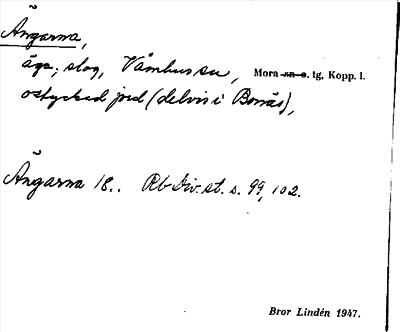 Ängarna,
äga; slog, Våmhus sn, Mora sn o. tg, Kopp. l.
ostyckad jord (delvis i Bonäs),
Ängarna 18.. Rb div. st. s. 99, 102.
Bror Lindén 1947.